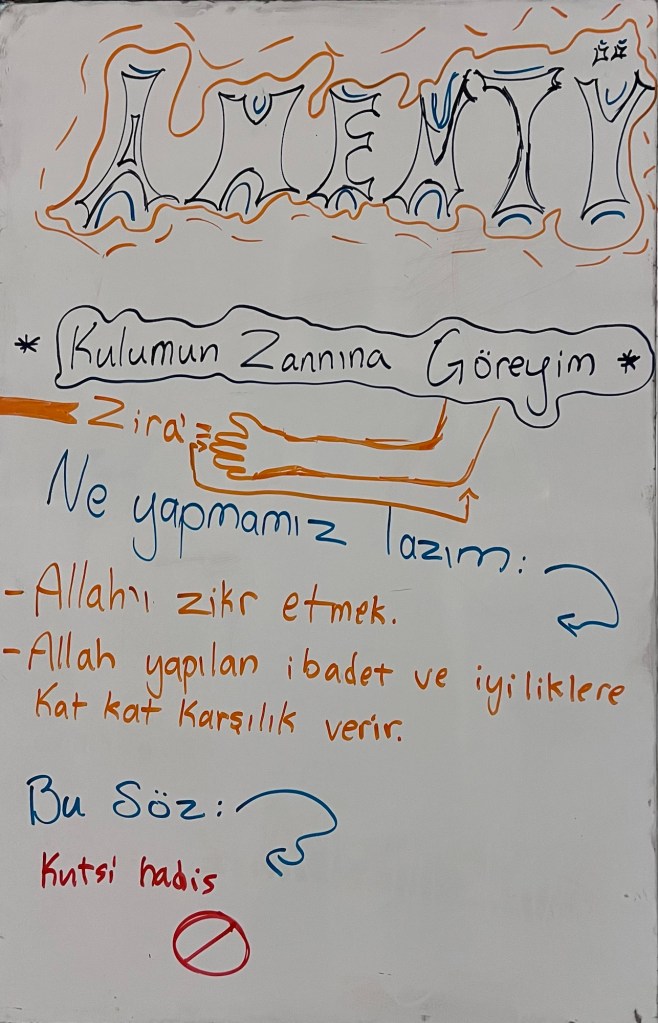 AMENTÜ
* Kulumun Zannına Göreyim *
Zira' =
Ne yapmamız lazım:
- Allah'ı zikr etmek.
- Allah yapılan ibadet ve iyiliklere
kat kat karşılık verir.
Bu Söz:
Kutsi hadis